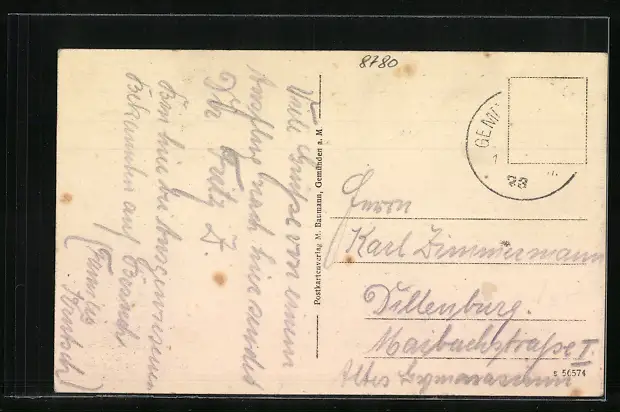 8780
Viele Grüße von einem
Ausflug nach hier sendet
Dir Fritz Z.
Bin hier bei Ausgewiesenen
Bekannten auf Besuch
(Familie
Postkartenverlag M. Baumann, Gemünden a. M.
GEMÜ
Herrn
Karl Zimmermann
Dillenburg.
Maibachstraße I.
Altes Gymnasium
S 56574